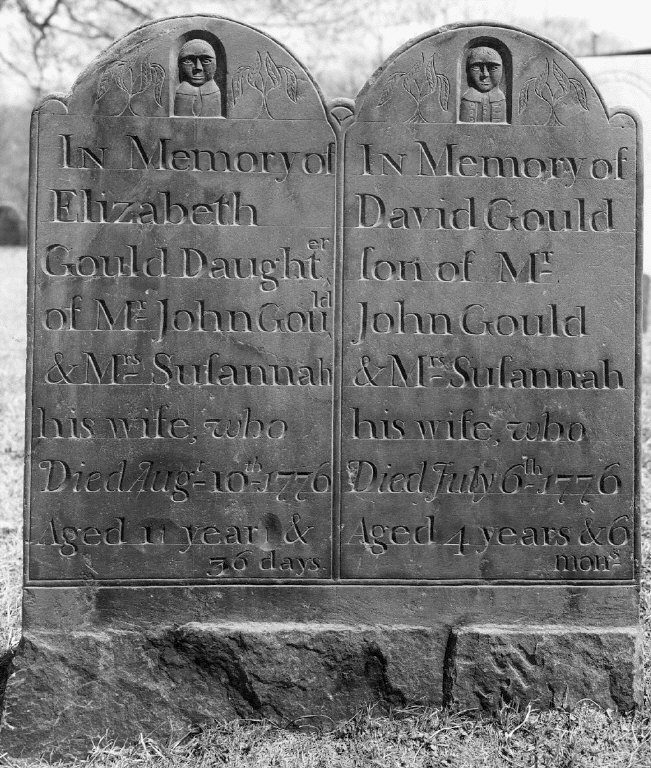 In Memory of
Elizabeth
Gould Daughtᵉʳ
of Mʳ John Gouˡᵈ
& Mʳˢ Suſannah
his wife, who
Died Augᵗ 10ᵗʰ 1776
Aged 11 year &
36 days
In Memory of
David Gould
ſon of Mʳ
John Gould
& Mʳˢ Suſannah
his wife, who
Died July 6ᵗʰ 1776
Aged 4 years & 6
monˢ